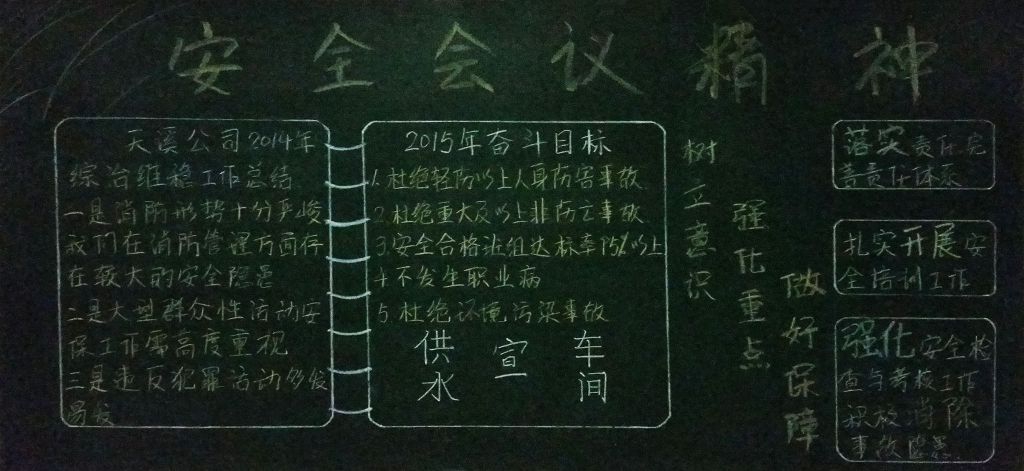 安全会议精神
天溪公司2014年
综治维稳工作总结
一是消防形势十分严峻
我们在消防管理方面存
在较大的安全隐患
二是大型群众性活动安
保工作需高度重视
三是违反犯罪活动多发
易发
2015年奋斗目标
1.杜绝轻伤以上人身伤害事故
2.杜绝重大及以上非伤亡事故
3.安全合格班组达标率75%以上
4.不发生职业病
5.杜绝环境污染事故
供水
宣
车间
树立意识
强化重点
做好保障
落实责任完
善责任体系
扎实开展安
全培训工作
强化安全检
查与考核工作
积极消除
事故隐患